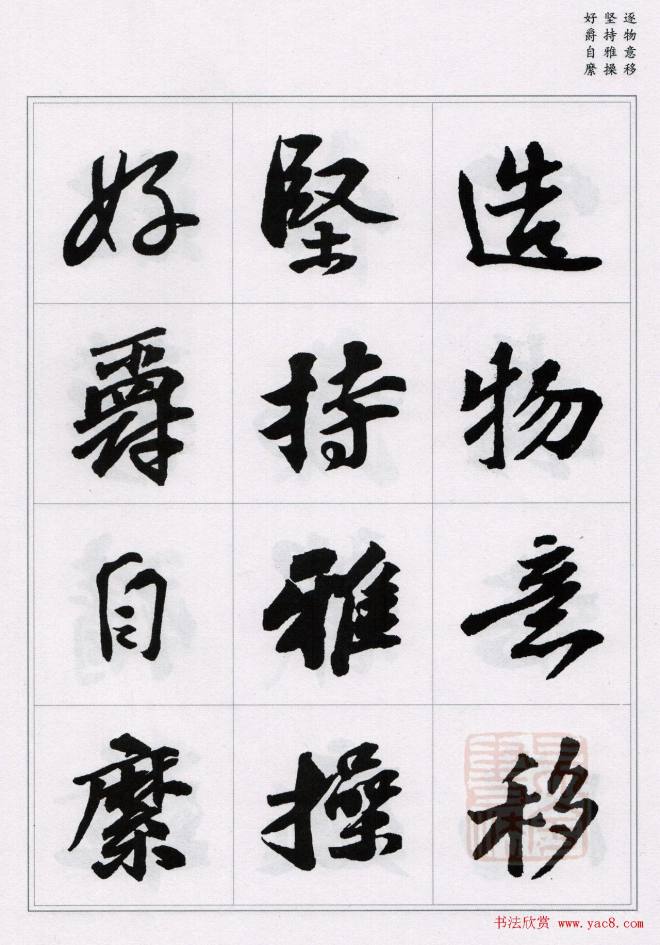 逐物意移
坚持雅操
好爵自縻
造物意移
堅持雅操
好爵自縻
书法欣赏 www.yac8.com